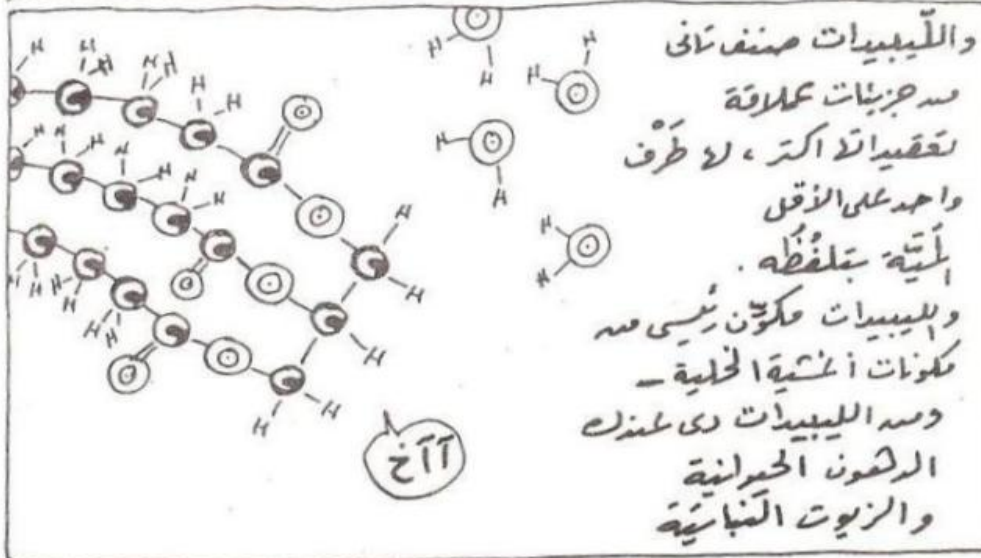 واللّيبيدات صنف تانى
من جزيئات عملاقة
تعقيداتها اكتر، لها طَرْف
واحد على الأقل
المَيَّة بتلفُظُه.
والليبيدات مكوّن رئيسى من
مكونات أغشية الخلية –
ومن الليبيدات دى عندك
الدهون الحيوانية
والزيوت النباتيّة
آآخ
H H H H H H H
H H H H H
H H H H H
H H
H H H H
H H
H H
H H